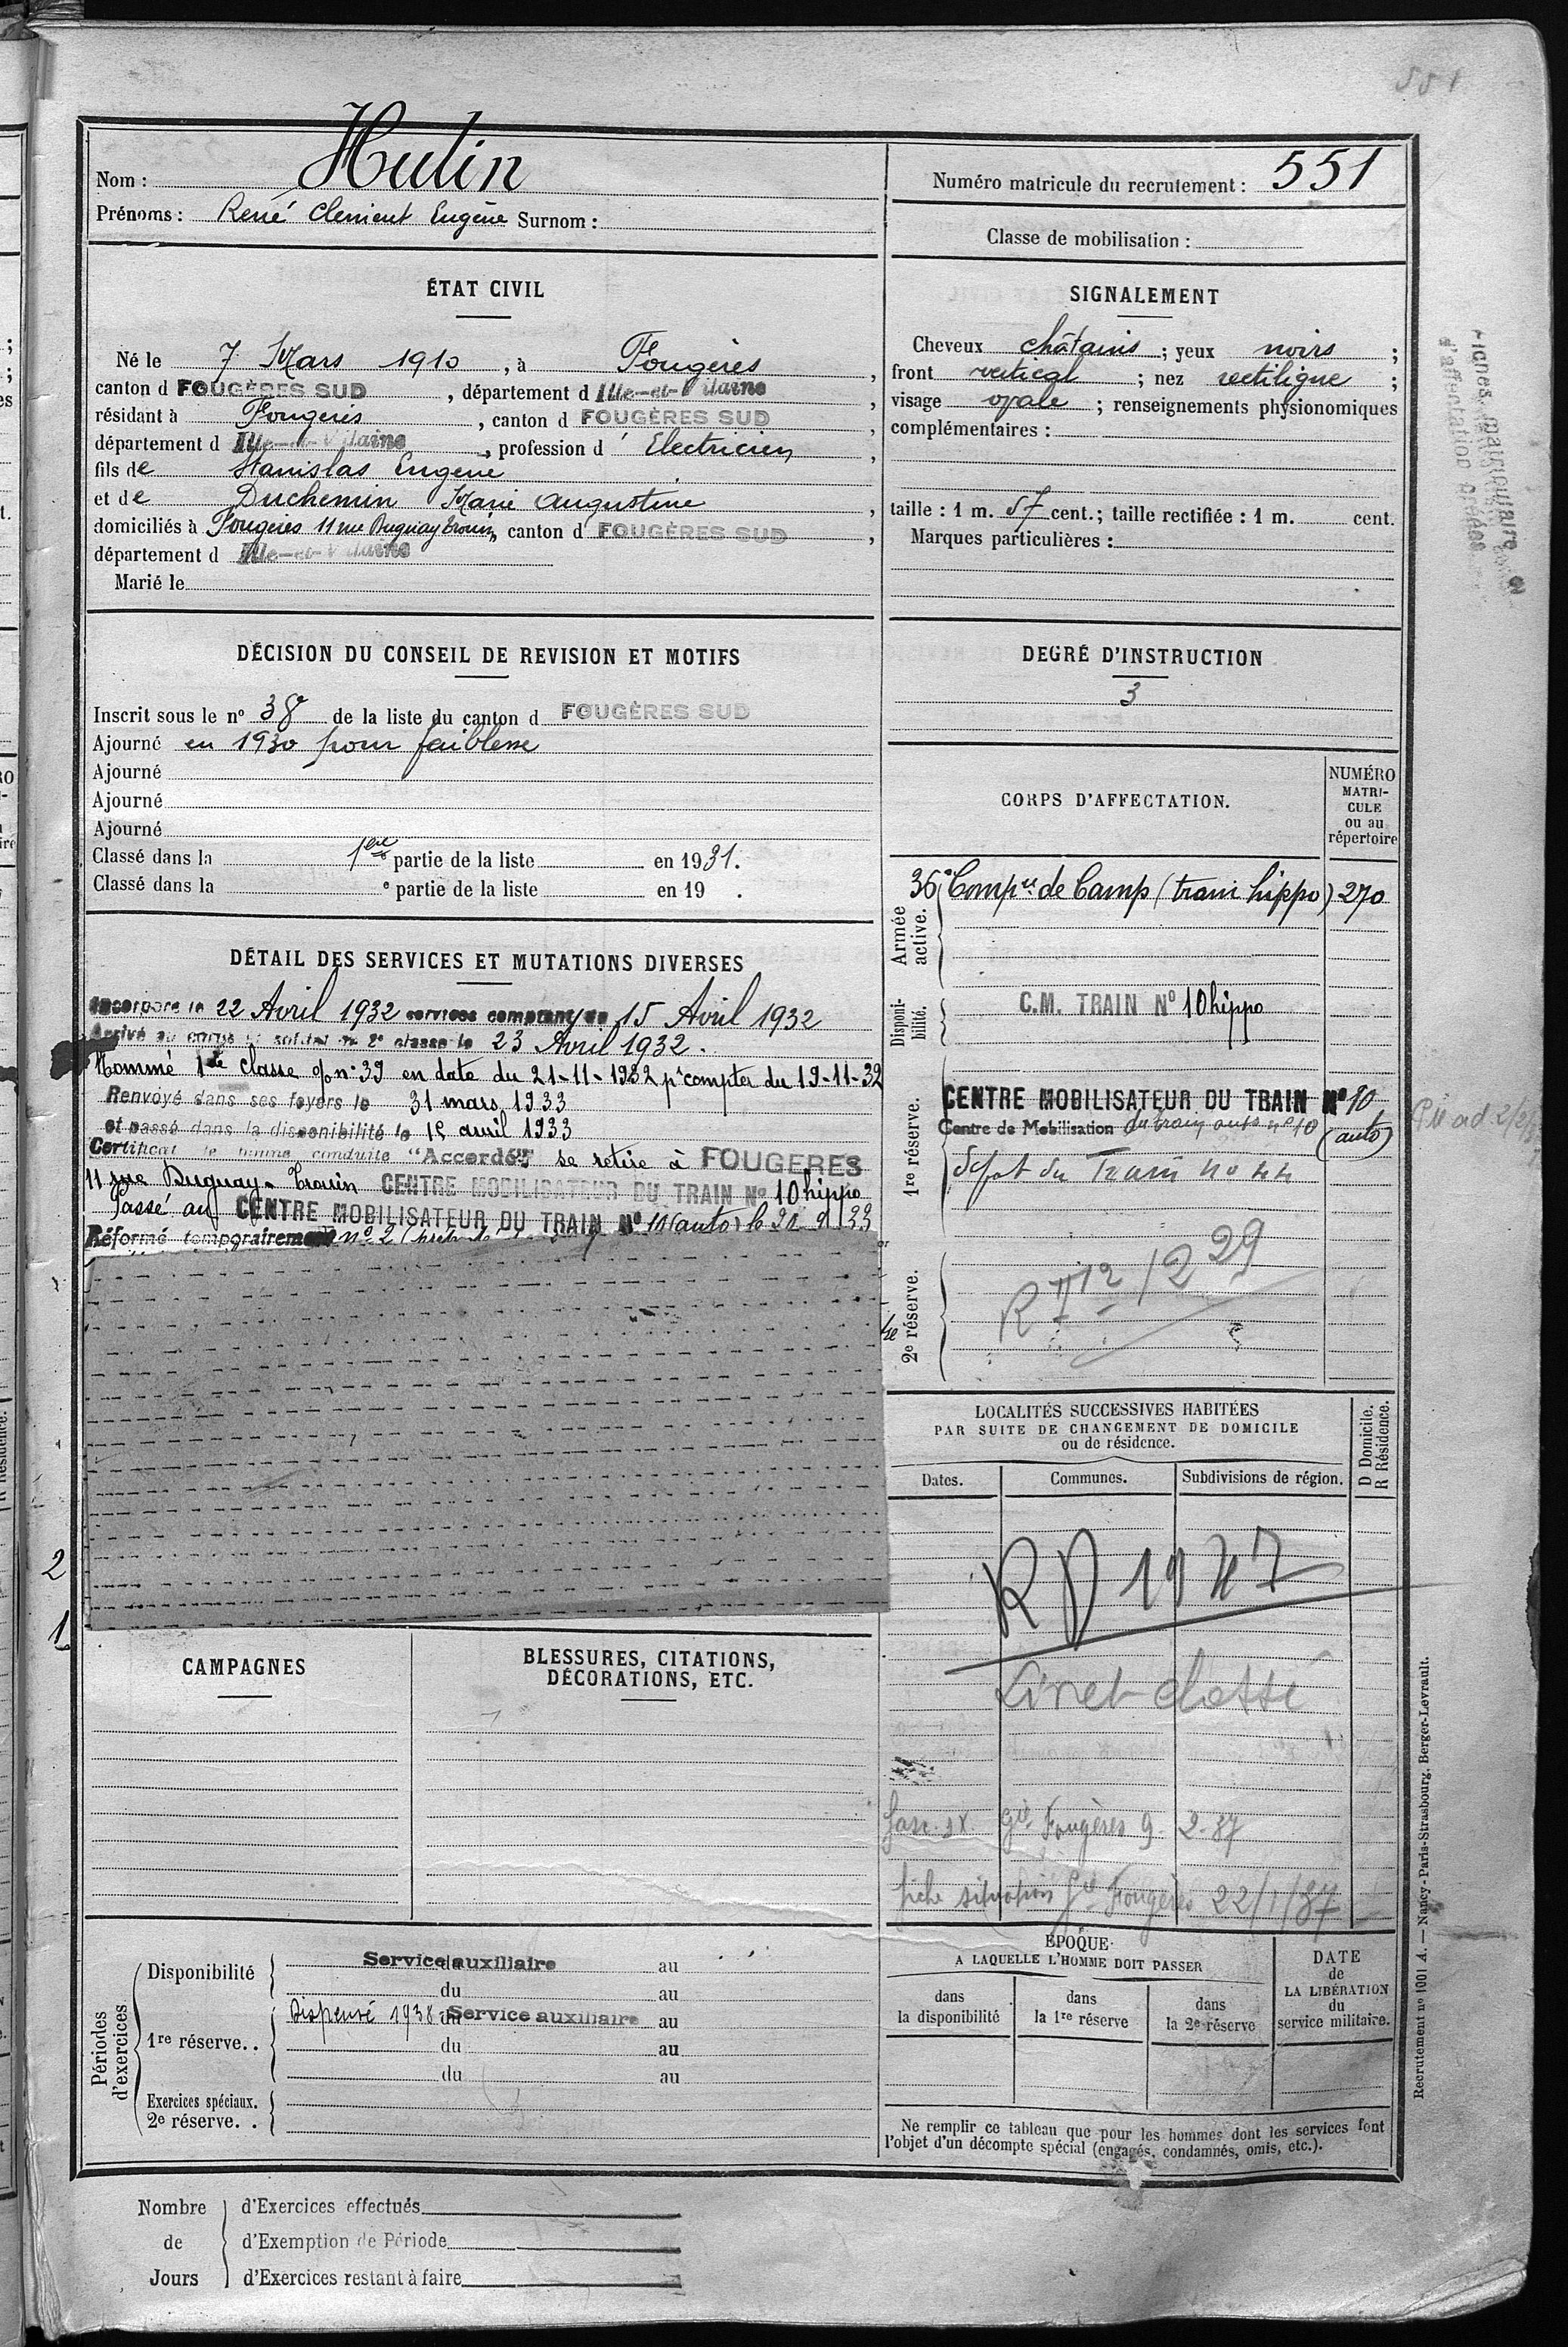 551
Nom : Hulin
Prénoms : René Clément Eugène Surnom :
Numéro matricule du recrutement : 551
Classe de mobilisation :
ÉTAT CIVIL
Né le 7 Mars 1910, à Fougères,
canton d FOUGÈRES SUD, département d Ille-et-Vilaine,
résidant à Fougères, canton d FOUGÈRES SUD,
département d Ille-et-Vilaine, profession d' Electricien,
fils de Stanislas Eugène
et de Duchemin Marie Augustine,
domiciliés à Fougères 11 rue Duguay Trouin, canton d FOUGÈRES SUD,
département d Ille-et-Vilaine
Marié le
SIGNALEMENT
Cheveux châtains ; yeux noirs ;
front vertical ; nez rectiligne ;
visage ovale ; renseignements physionomiques
complémentaires :
taille : 1 m. 57 cent. ; taille rectifiée : 1 m. cent.
Marques particulières :
DÉCISION DU CONSEIL DE REVISION ET MOTIFS
Inscrit sous le nº 38 de la liste du canton d FOUGÈRES SUD
Ajourné en 1930 pour faiblesse
Ajourné
Ajourné
Ajourné
Classé dans la 1ère partie de la liste en 1931.
Classé dans la e partie de la liste en 19 .
DEGRÉ D'INSTRUCTION
3
CORPS D'AFFECTATION.
NUMÉRO
MATRI-
CULE
ou au
répertoire
Armée active.
36e Compie de Camp (train hippo) 270
Disponi-
bilité.
C.M. TRAIN Nº 10 hippo
1re réserve.
CENTRE MOBILISATEUR DU TRAIN Nº 10
Centre de Mobilisation du train auto nº 10 (auto)
Dépôt du Train nº 44
2e réserve.
DÉTAIL DES SERVICES ET MUTATIONS DIVERSES
Incorporé le 22 Avril 1932 services comptant du 15 Avril 1932
Arrivé au corps et soldat de 2e classe le 23 Avril 1932.
Nommé 1re classe o/nº 39 en date du 21-11-1932 pr compter du 19-11-32
Renvoyé dans ses foyers le 31 mars 1933
et passé dans la disponibilité le 15 avril 1933
Certificat de bonne conduite "Accordé" se retire à FOUGERES
11 rue Duguay-Trouin CENTRE MOBILISATEUR DU TRAIN Nº 10 hippo
Passé au CENTRE MOBILISATEUR DU TRAIN Nº 10 (auto) le
Réformé temporairement nº 2
2
1
LOCALITÉS SUCCESSIVES HABITÉES
PAR SUITE DE CHANGEMENT DE DOMICILE
ou de résidence.
Dates.
Communes.
Subdivisions de région.
D Domicile.
R Résidence.
R D 1947
Livret classé
Gie Fougères 9-2-37
fiche situation Gie Fougères 22/1/37
CAMPAGNES
BLESSURES, CITATIONS,
DÉCORATIONS, ETC.
Périodes
d'exercices
Disponibilité
Service auxiliaire
du au
du au
1re réserve..
Dispensé 1938 Service auxiliaire
du au
du au
du au
Exercices spéciaux.
2e réserve. .
ÉPOQUE
A LAQUELLE L'HOMME DOIT PASSER
dans
la disponibilité
dans
la 1re réserve
dans
la 2e réserve
DATE
de
LA LIBÉRATION
du
service militaire.
Ne remplir ce tableau que pour les hommes dont les services font
l'objet d'un décompte spécial (engagés, condamnés, omis, etc.).
Nombre
de
Jours
d'Exercices effectués
d'Exemption de Période
d'Exercices restant à faire
Recrutement nº 1001 A. — Nancy-Paris-Strasbourg, Berger-Levrault.